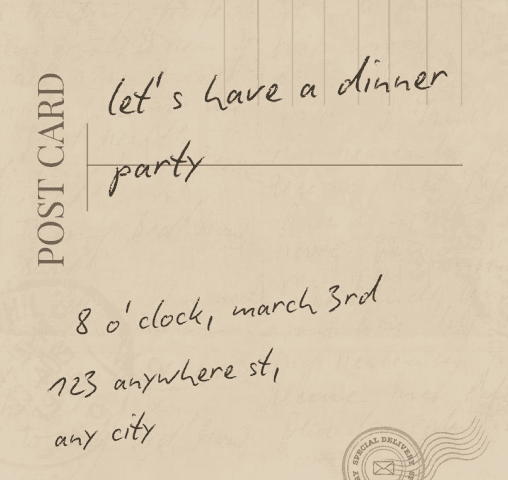 let's have a dinner
party
POST CARD
8 o'clock, march 3rd
123 anywhere st,
any city
SPECIAL DELIVERY